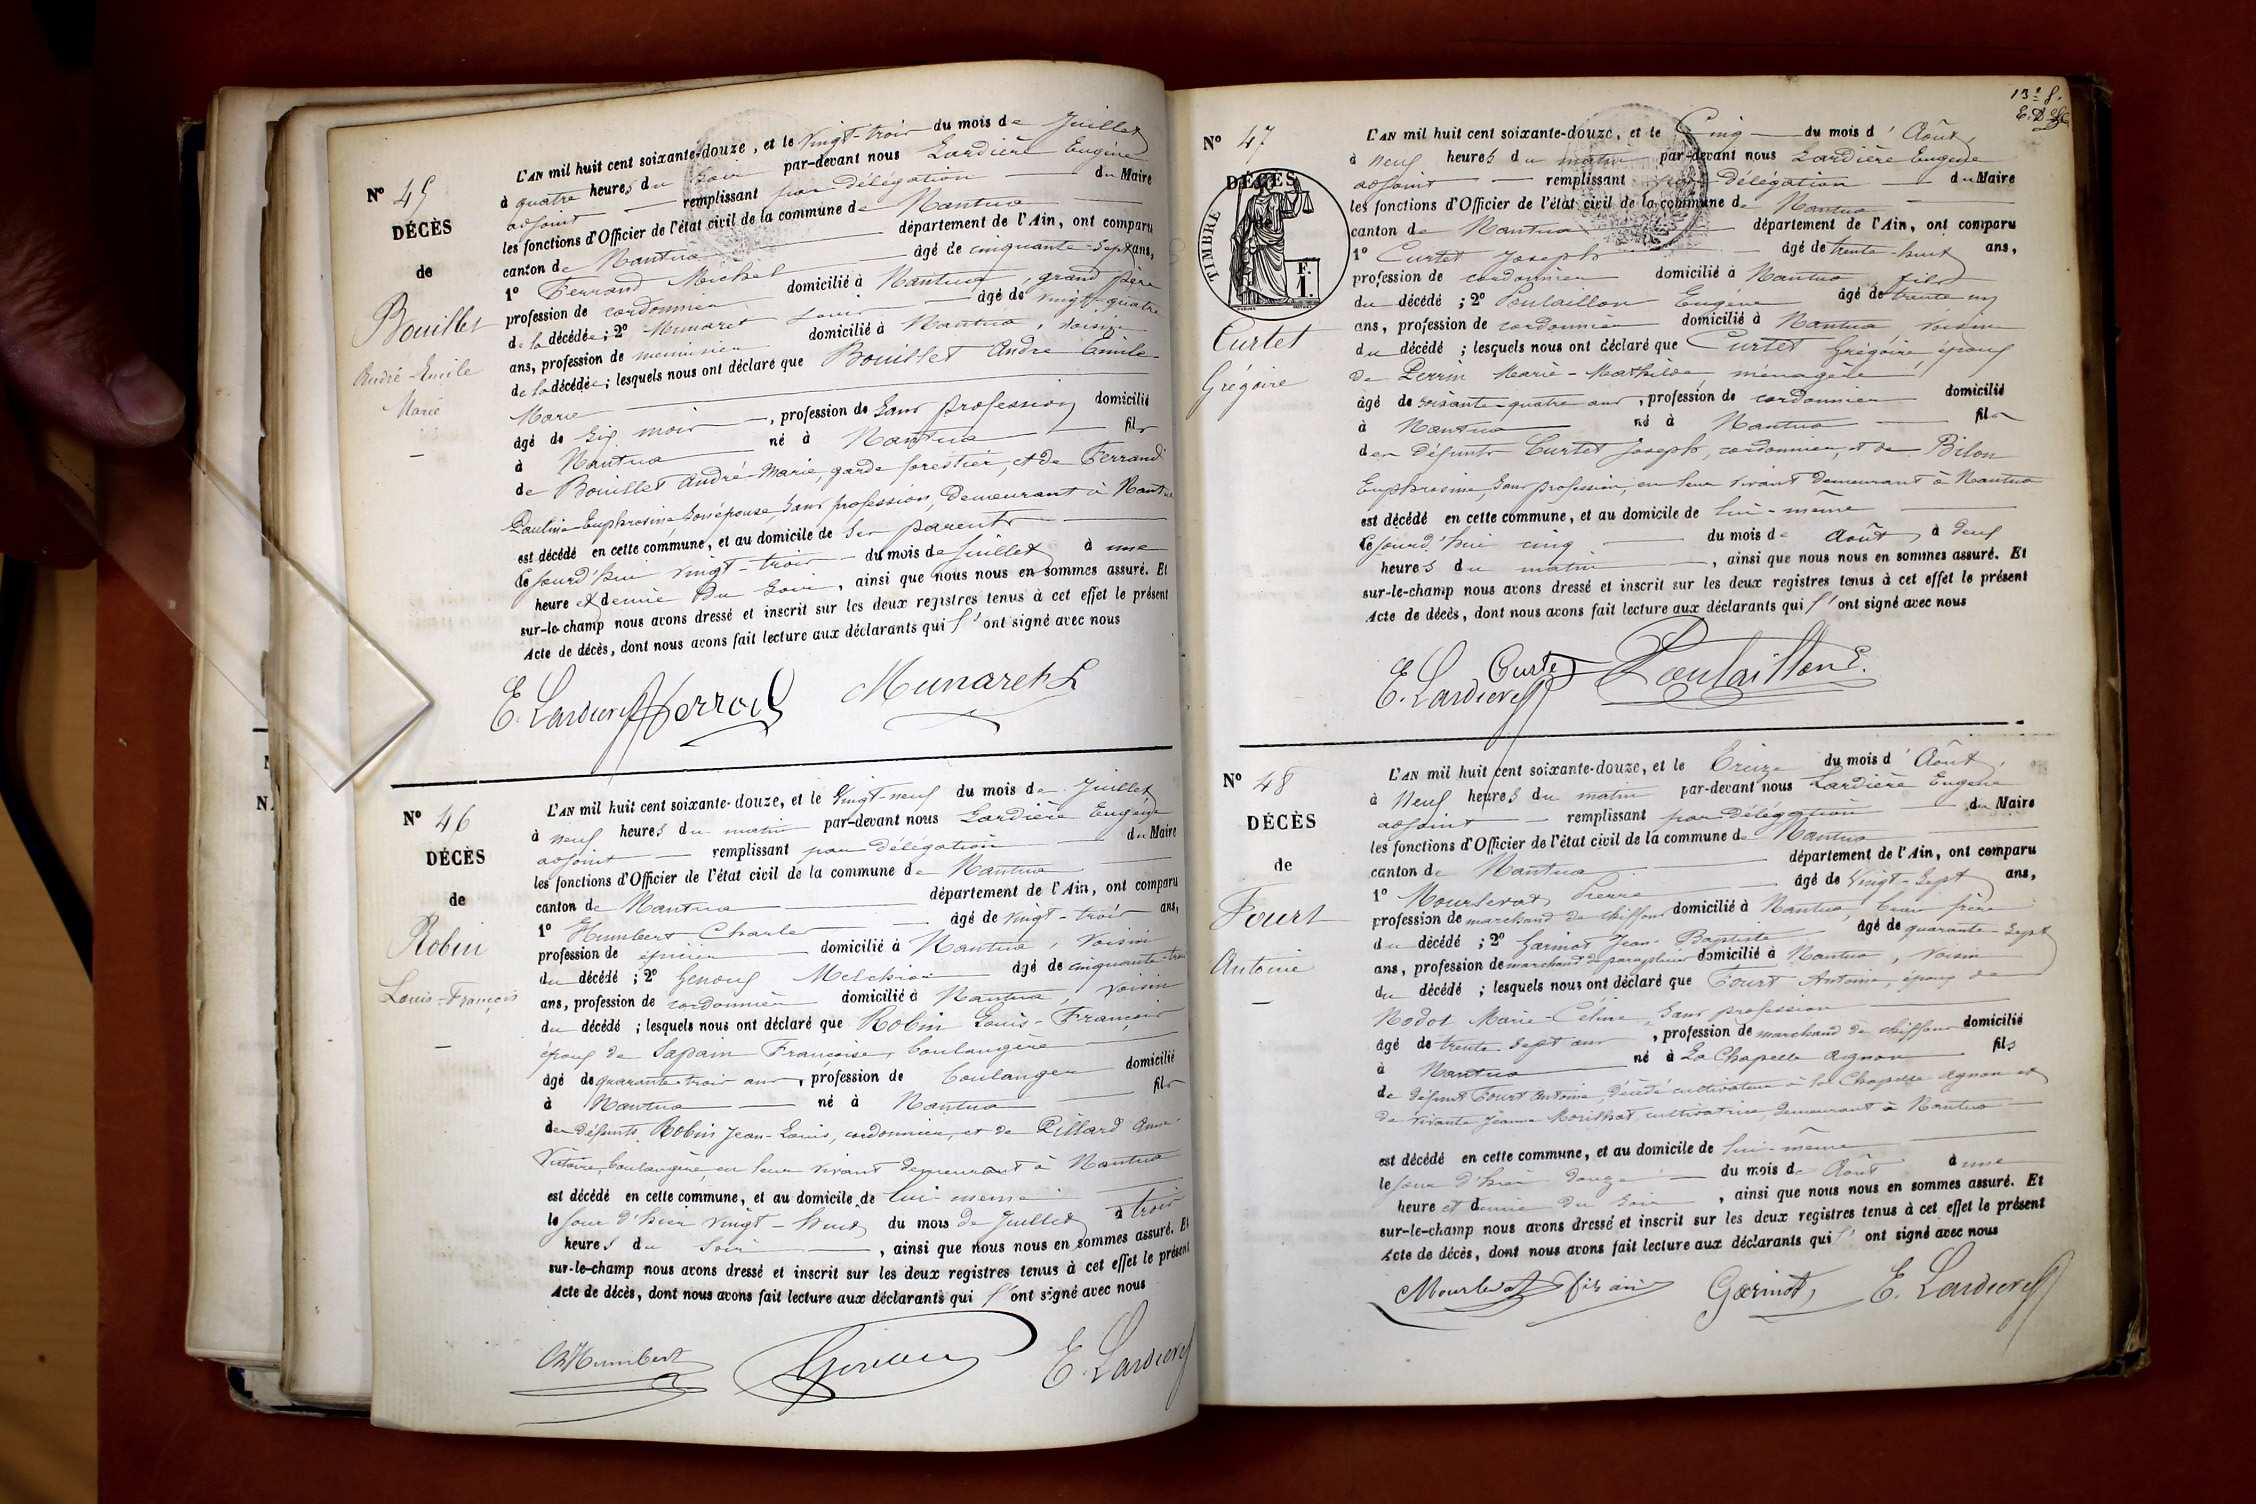 N° 45
DÉCÈS
de
Bouillet
André-Emile
Marie
L'AN mil huit cent soixante-douze, et le vingt-trois du mois de Juillet
à quatre heures du soir par-devant nous Lardière Eugène
adjoint remplissant par délégation du Maire
les fonctions d'Officier de l'état civil de la commune de Nantua
canton de Nantua département de l'Ain, ont comparu
1° Ferrand Michel âgé de cinquante-sept ans,
profession de cordonnier domicilié à Nantua, grand père
de la décédée; 2° Munaret Louis âgé de vingt-quatre
ans, profession de menuisier domicilié à Nantua, voisin
de la décédée; lesquels nous ont déclaré que Bouillet André Emile
Marie
âgé de six mois, profession de sans profession domicilié
à Nantua né à Nantua fils
de Bouillet André-Marie, garde forestier, et de Ferrand
Pauline Euphrosine, son épouse, sans profession, demeurant à Nantua
est décédé en cette commune, et au domicile de ses parents
le jourd'hui vingt-trois du mois de Juillet à une
heure et demie du soir, ainsi que nous nous en sommes assuré. Et
sur-le-champ nous avons dressé et inscrit sur les deux registres tenus à cet effet le présent
Acte de décès, dont nous avons fait lecture aux déclarants qui l'ont signé avec nous
E. Lardière Munaret L
N° 46
DÉCÈS
de
Robin
Louis-François
L'AN mil huit cent soixante-douze, et le vingt-neuf du mois de Juillet
à neuf heures du matin par-devant nous Lardière Eugène
adjoint remplissant par délégation du Maire
les fonctions d'Officier de l'état civil de la commune de Nantua
canton de Nantua département de l'Ain, ont comparu
1° Humbert Charles âgé de vingt-trois ans,
profession de épicier domicilié à Nantua, voisin
du décédé; 2° Genoux Melchior âgé de cinquante-trois
ans, profession de cordonnier domicilié à Nantua, voisin
du décédé; lesquels nous ont déclaré que Robin Louis-François
époux de Sapain Françoise, boulangère
âgé de quarante-trois ans, profession de boulanger domicilié
à Nantua né à Nantua fils
des défunts Robin Jean-Louis, cordonnier, et de Pillard Anne-
Victoire, boulangère, en leur vivant demeurant à Nantua
est décédé en cette commune, et au domicile de lui-même
le jour d'hier vingt-huit du mois de Juillet à trois
heures du soir, ainsi que nous nous en sommes assuré. Et
sur-le-champ nous avons dressé et inscrit sur les deux registres tenus à cet effet le présent
Acte de décès, dont nous avons fait lecture aux déclarants qui l'ont signé avec nous
Ch Humbert E. Lardière
13e f.
N° 47
DÉCÈS
TIMBRE
F.
1.
Curtet
Grégoire
L'AN mil huit cent soixante-douze, et le Cinq du mois d'Août
à neuf heures du matin par-devant nous Lardière Eugène
adjoint remplissant par délégation du Maire
les fonctions d'Officier de l'état civil de la commune de Nantua
canton de Nantua département de l'Ain, ont comparu
1° Curtet Joseph âgé de trente-huit ans,
profession de cordonnier domicilié à Nantua fils
du décédé; 2° Poulaillon Eugène âgé de trente un
ans, profession de cordonnier domicilié à Nantua voisin
du décédé; lesquels nous ont déclaré que Curtet Grégoire, époux
de Perrin Marie-Mathilde, ménagère
âgé de soixante-quatre ans, profession de cordonnier domicilié
à Nantua né à Nantua fils
des défunts Curtet Joseph, cordonnier, et de Bilon
Euphrosine, sans profession, en leur vivant demeurant à Nantua
est décédé en cette commune, et au domicile de lui-même
le jourd'hui cinq du mois de Août à deux
heures du matin, ainsi que nous nous en sommes assuré. Et
sur-le-champ nous avons dressé et inscrit sur les deux registres tenus à cet effet le présent
Acte de décès, dont nous avons fait lecture aux déclarants qui l'ont signé avec nous
E. Lardière Curtet Poulaillon E.
N° 48
DÉCÈS
de
Fourt
Antoine
L'AN mil huit cent soixante-douze, et le Treize du mois d'Août
à neuf heures du matin par-devant nous Lardière Eugène
adjoint remplissant par délégation du Maire
les fonctions d'Officier de l'état civil de la commune de Nantua
canton de Nantua département de l'Ain, ont comparu
1° Mourlevat Pierre âgé de vingt-sept ans,
profession de marchand de chiffons domicilié à Nantua, beau frère
du décédé; 2° Garinot Jean-Baptiste âgé de quarante-sept
ans, profession de marchand de parapluies domicilié à Nantua, voisin
du décédé; lesquels nous ont déclaré que Fourt Antoine, époux de
Nodot Marie-Céline, sans profession
âgé de trente-sept ans, profession de marchand de chiffons domicilié
à Nantua né à La Chapelle Agnon fils
de défunt Fourt Antoine, décédé cultivateur à la Chapelle Agnon et
de vivante Jeanne cultivatrice, demeurant à Nantua
est décédé en cette commune, et au domicile de lui-même
le jour d'hier douze du mois de Août à une
heure et demie du soir, ainsi que nous nous en sommes assuré. Et
sur-le-champ nous avons dressé et inscrit sur les deux registres tenus à cet effet le présent
Acte de décès, dont nous avons fait lecture aux déclarants qui l'ont signé avec nous
Mourlevat Garinot E. Lardière